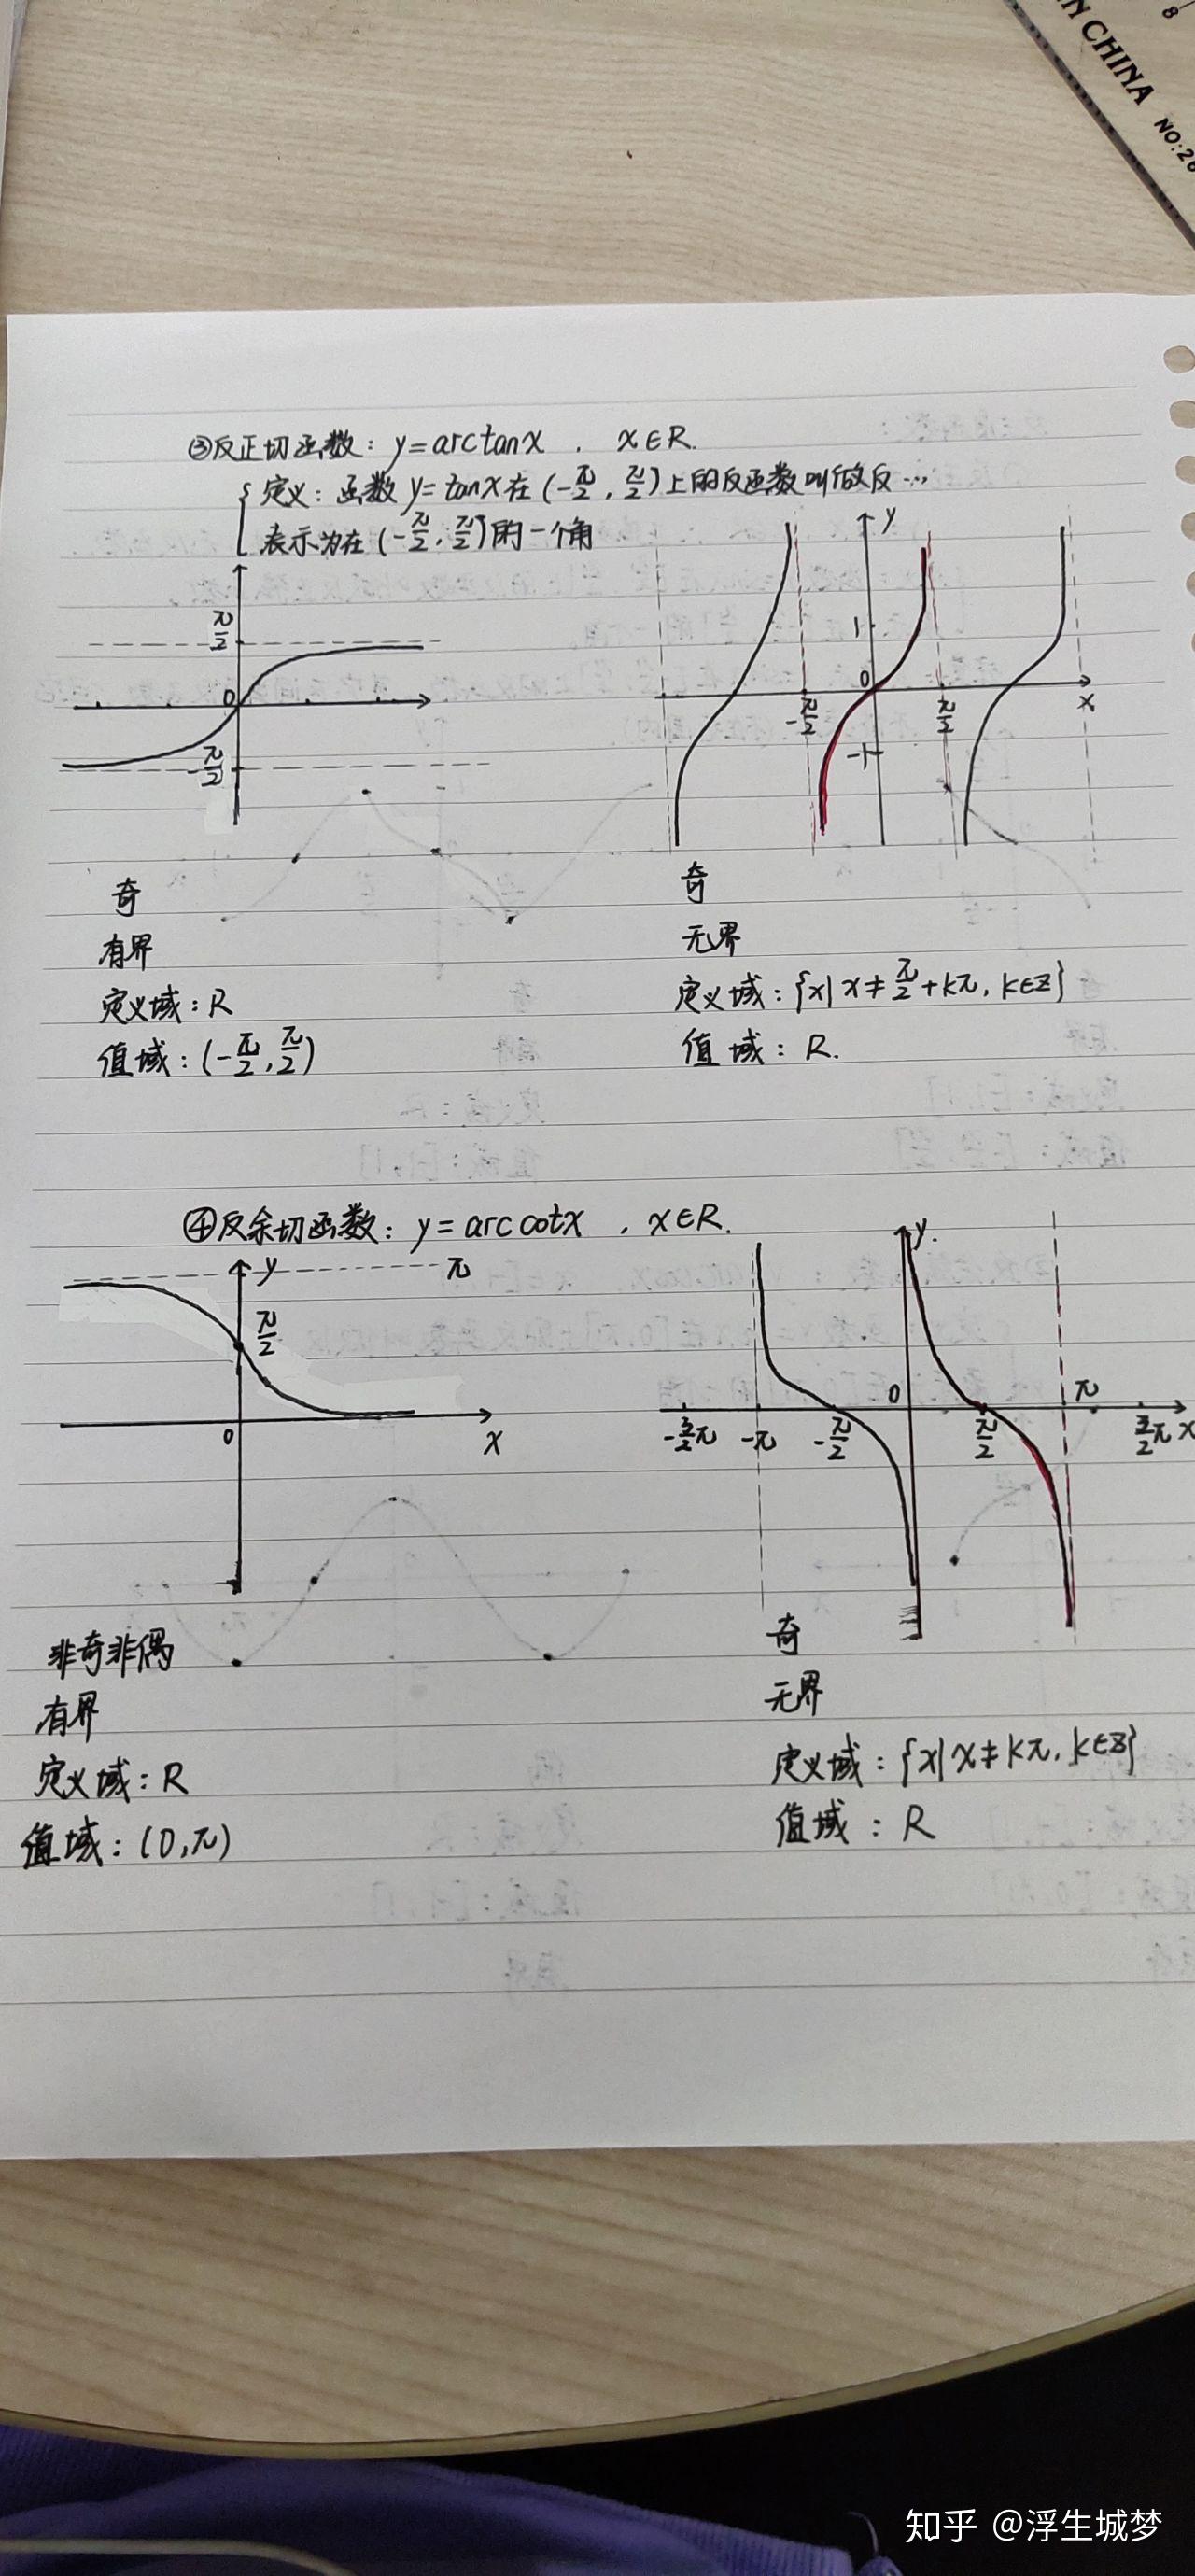 EN CHINA NO:26
8
③反正切函数: y=arctanx , x∈R.
定义: 函数 y=tanx 在 (-π/2, π/2) 上的反函数叫做反…
表示为在 (-π/2, π/2) 的一个角
π/2
0
-π/2
y
1
0
-π/2
π/2
x
-1
奇
有界
定义域: R
值域: (-π/2, π/2)
奇
无界
定义域: {x| x≠π/2+kπ, k∈Z}
值域: R.
④反余切函数: y=arccotx , x∈R.
y
π
π/2
0
x
y.
0
π
-3/2π
-π
-π/2
π/2
3/2π
x
非奇非偶
有界
定义域: R
值域: (0,π)
奇
无界
定义域: {x| x≠kπ, k∈Z}
值域: R
知乎 @浮生城梦